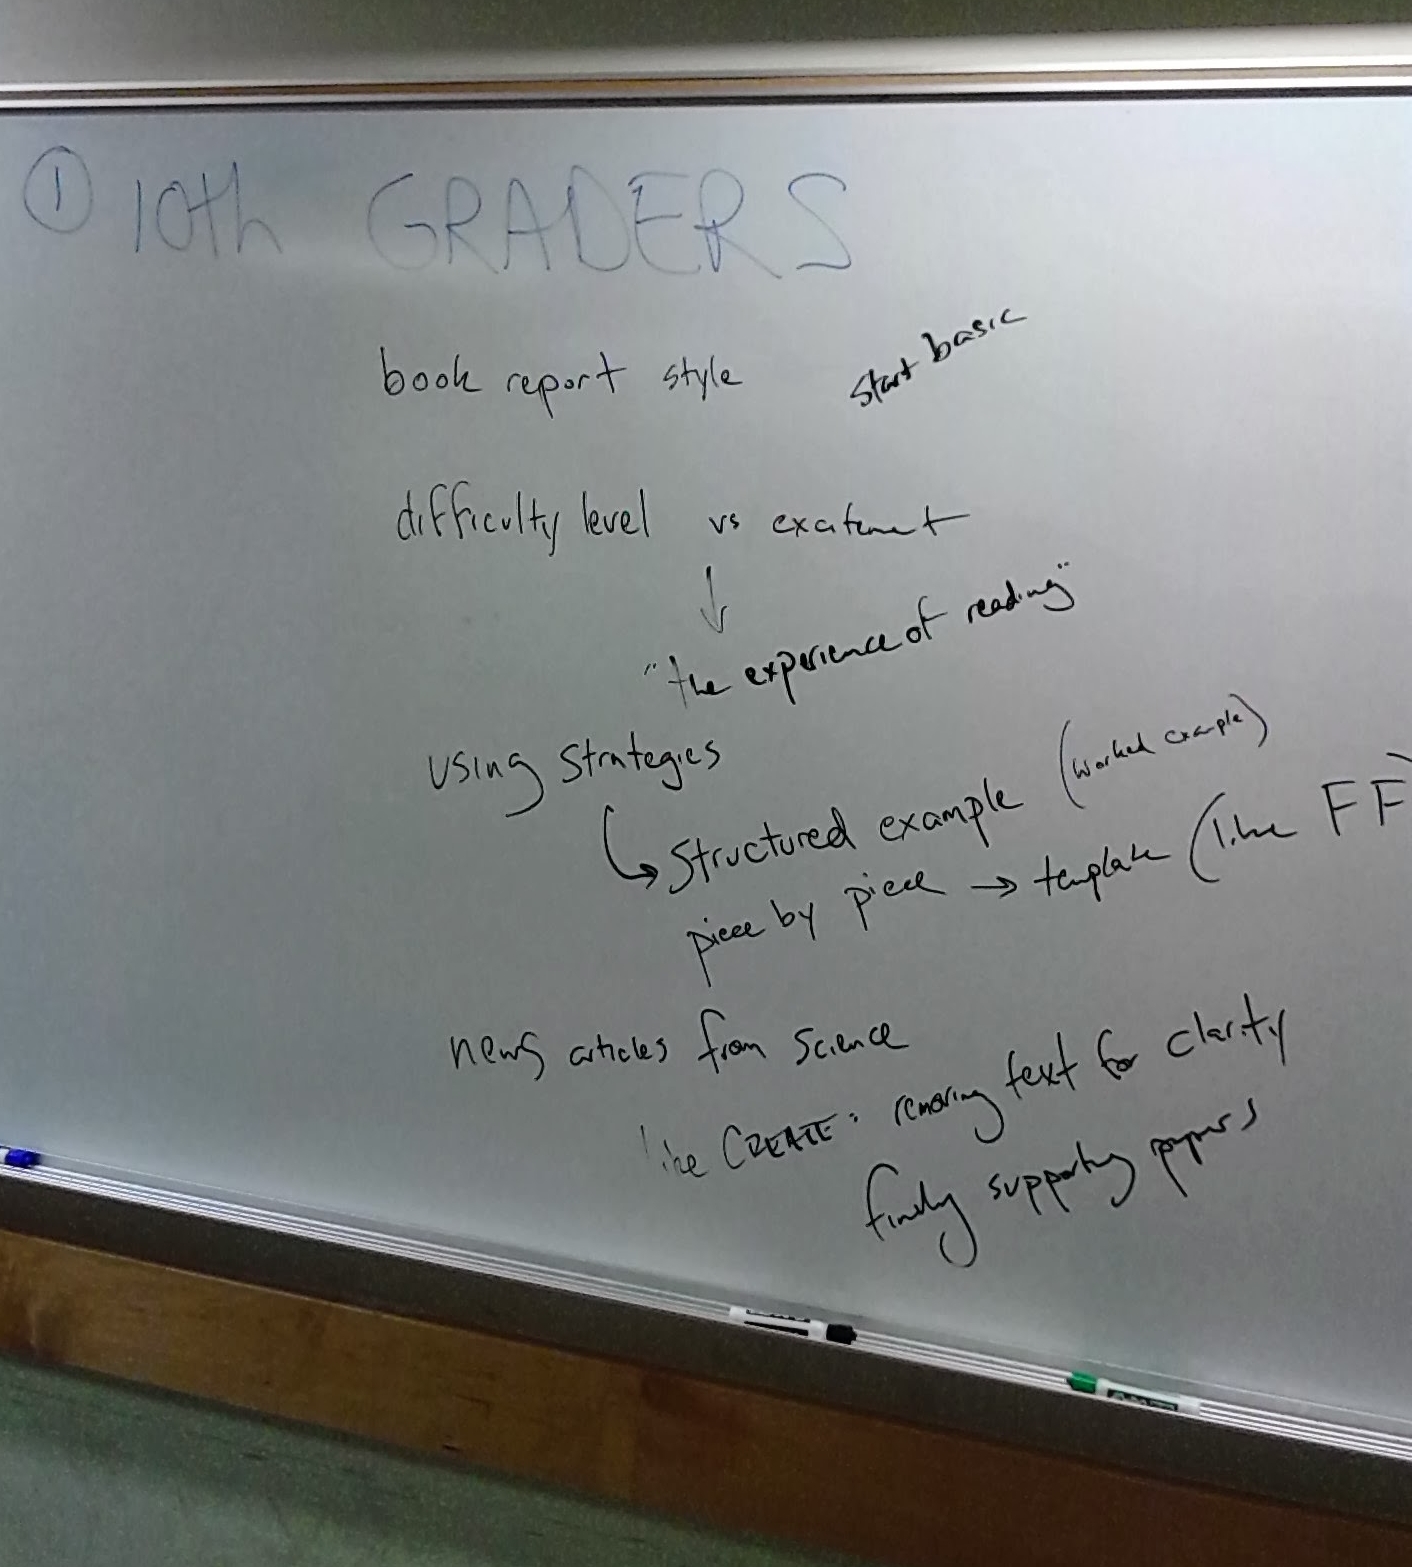 ① 10th GRADERS
book report style start basic
difficulty level vs excitement
↓
"the experience of reading"
using strategies
↳ structured example (worked example)
piece by piece → template (like FF)
news articles from science
like CREATE: removing text for clarity
finding supporting papers